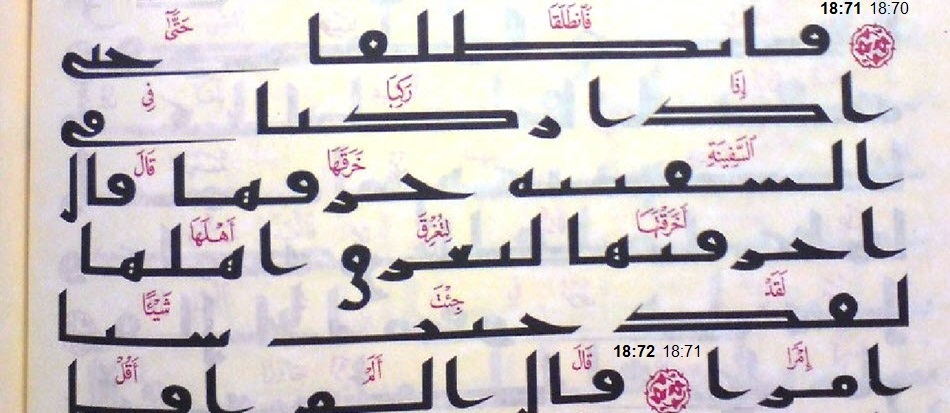 18:71 18:70
فَانطَلَقَا حَتَّىٰ
فانطلقا حتى
إِذَا رَكِبَا فِي
اذا ركبا في
ٱلسَّفِينَةِ خَرَقَهَا قَالَ
السفينه خرقها قال
أَخَرَقْتَهَا لِتُغْرِقَ أَهْلَهَا
اخرقتها لتغرق اهلها
لَقَدْ جِئْتَ شَيْئًا
لقد جيت شيا
18:72 18:71
إِمْرًا قَالَ أَلَمْ أَقُلْ
امرا قال الم اقل